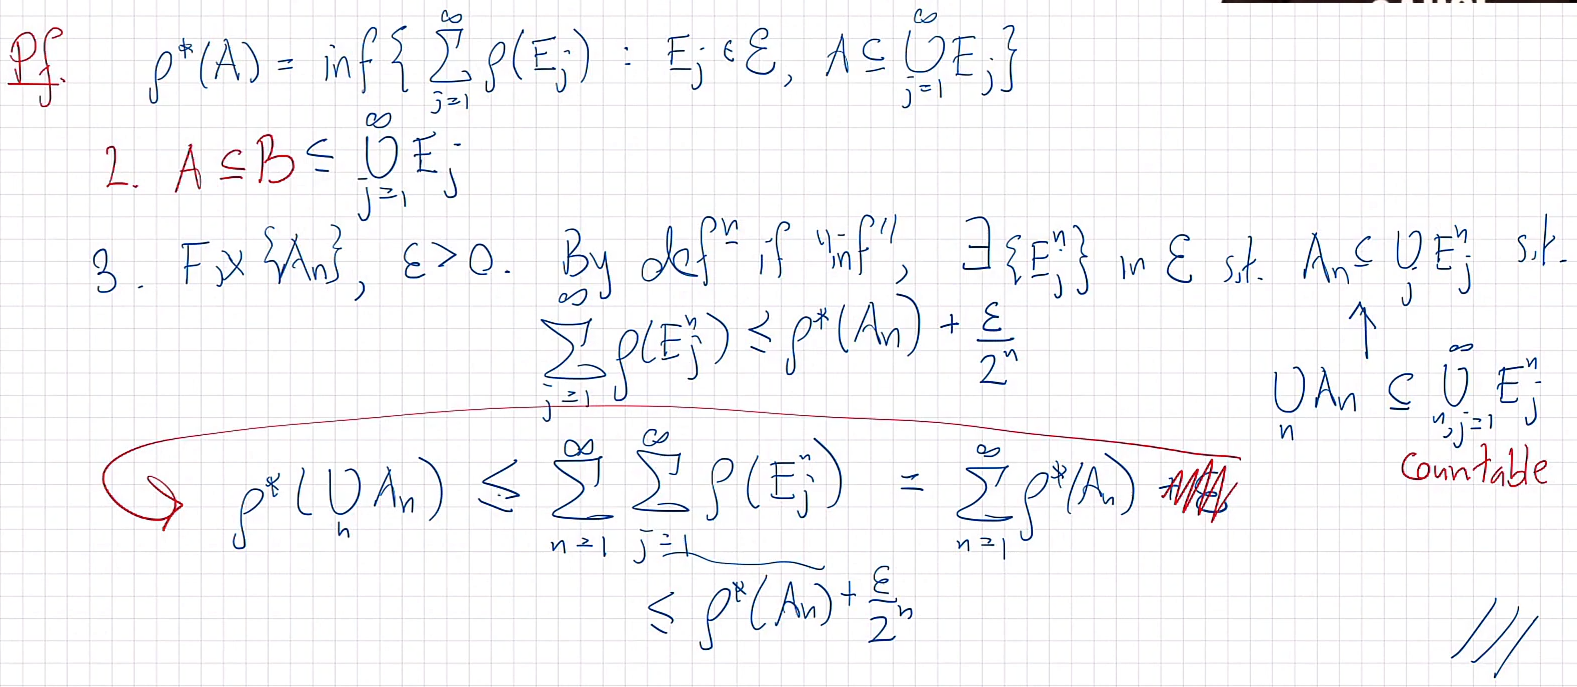 Pf. ρ*(A) = inf{ ∑_{j=1}^{∞} ρ(E_j) : E_j ∈ ℰ, A ⊆ ⋃_{j=1}^{∞} E_j }
2. A ⊆ B ⊆ ⋃_{j=1}^{∞} E_j
3. Fix {A_n}, ε > 0. By defⁿ if "inf", ∃ {E_j^n} in ℰ s.t. A_n ⊆ ⋃_j E_j^n s.t.
∑_{j=1}^{∞} ρ(E_j^n) ≤ ρ*(A_n) + ε/2^n
↑
⋃_n A_n ⊆ ⋃_{n,j=1}^{∞} E_j^n
countable
ρ*(⋃_n A_n) ≤ ∑_{n=1}^{∞} ∑_{j=1}^{∞} ρ(E_j^n) = ∑_{n=1}^{∞} ρ*(A_n)
≤ ρ*(A_n) + ε/2^n
///